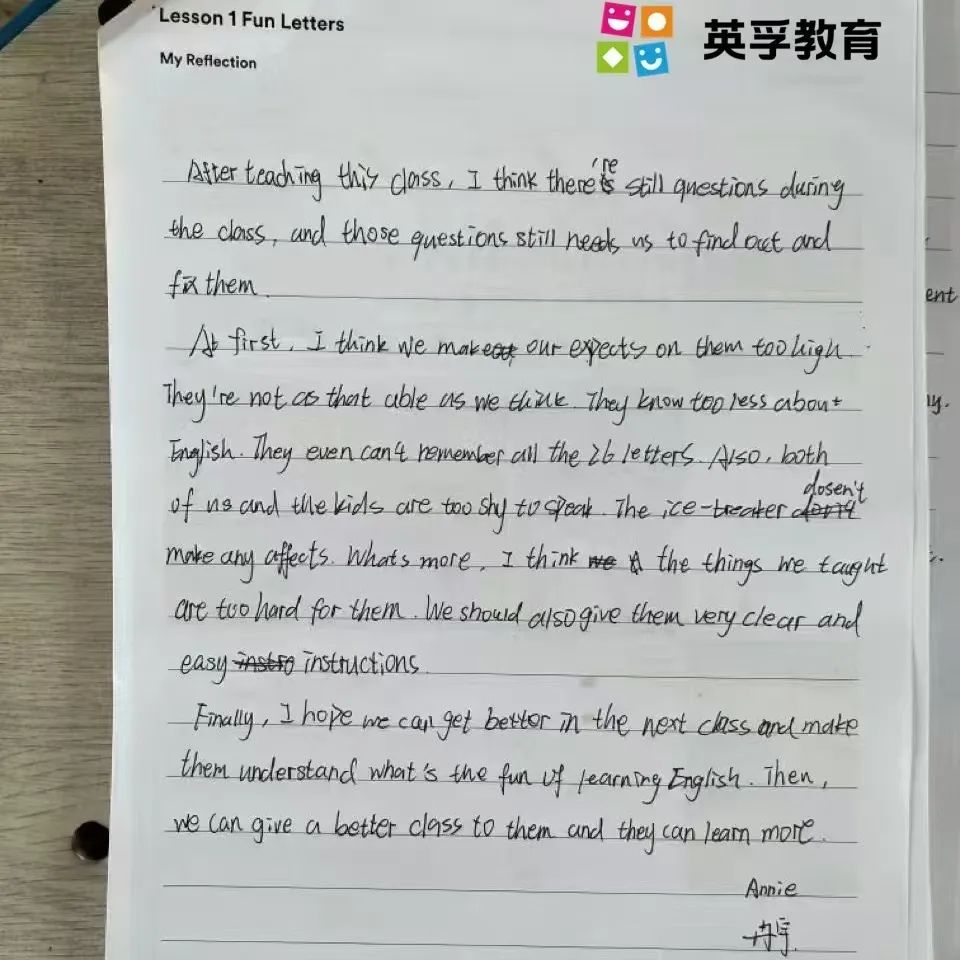 Lesson 1 Fun Letters
英孚教育
My Reflection
After teaching this class, I think there're still questions during
the class, and those questions still needs us to find out and
fix them.
At first, I think we make our expects on them too high.
They're not as that able as we think. They know too less about
English. They even can't remember all the 26 letters. Also, both
of us and the kids are too shy to speak. The ice-breaker dosen't
make any affects. Whats more, I think the things we taught
are too hard for them. We should also give them very clear and
easy instructions.
Finally, I hope we can get better in the next class and make
them understand what's the fun of learning English. Then,
we can give a better class to them and they can learn more.
Annie
ent